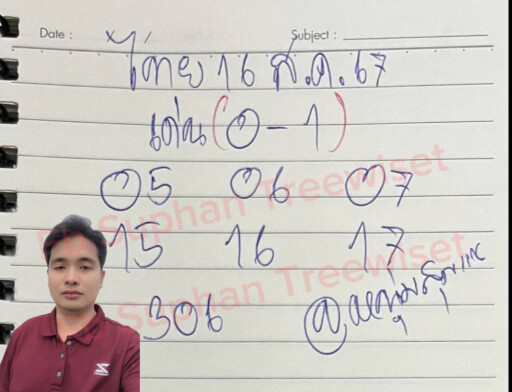 Date : Subject :
ไทย 16 ส.ค. 67
เด่น (0-1)
05 06 07
15 16 17
Suphan Treewiset
Suphan Treewiset
306